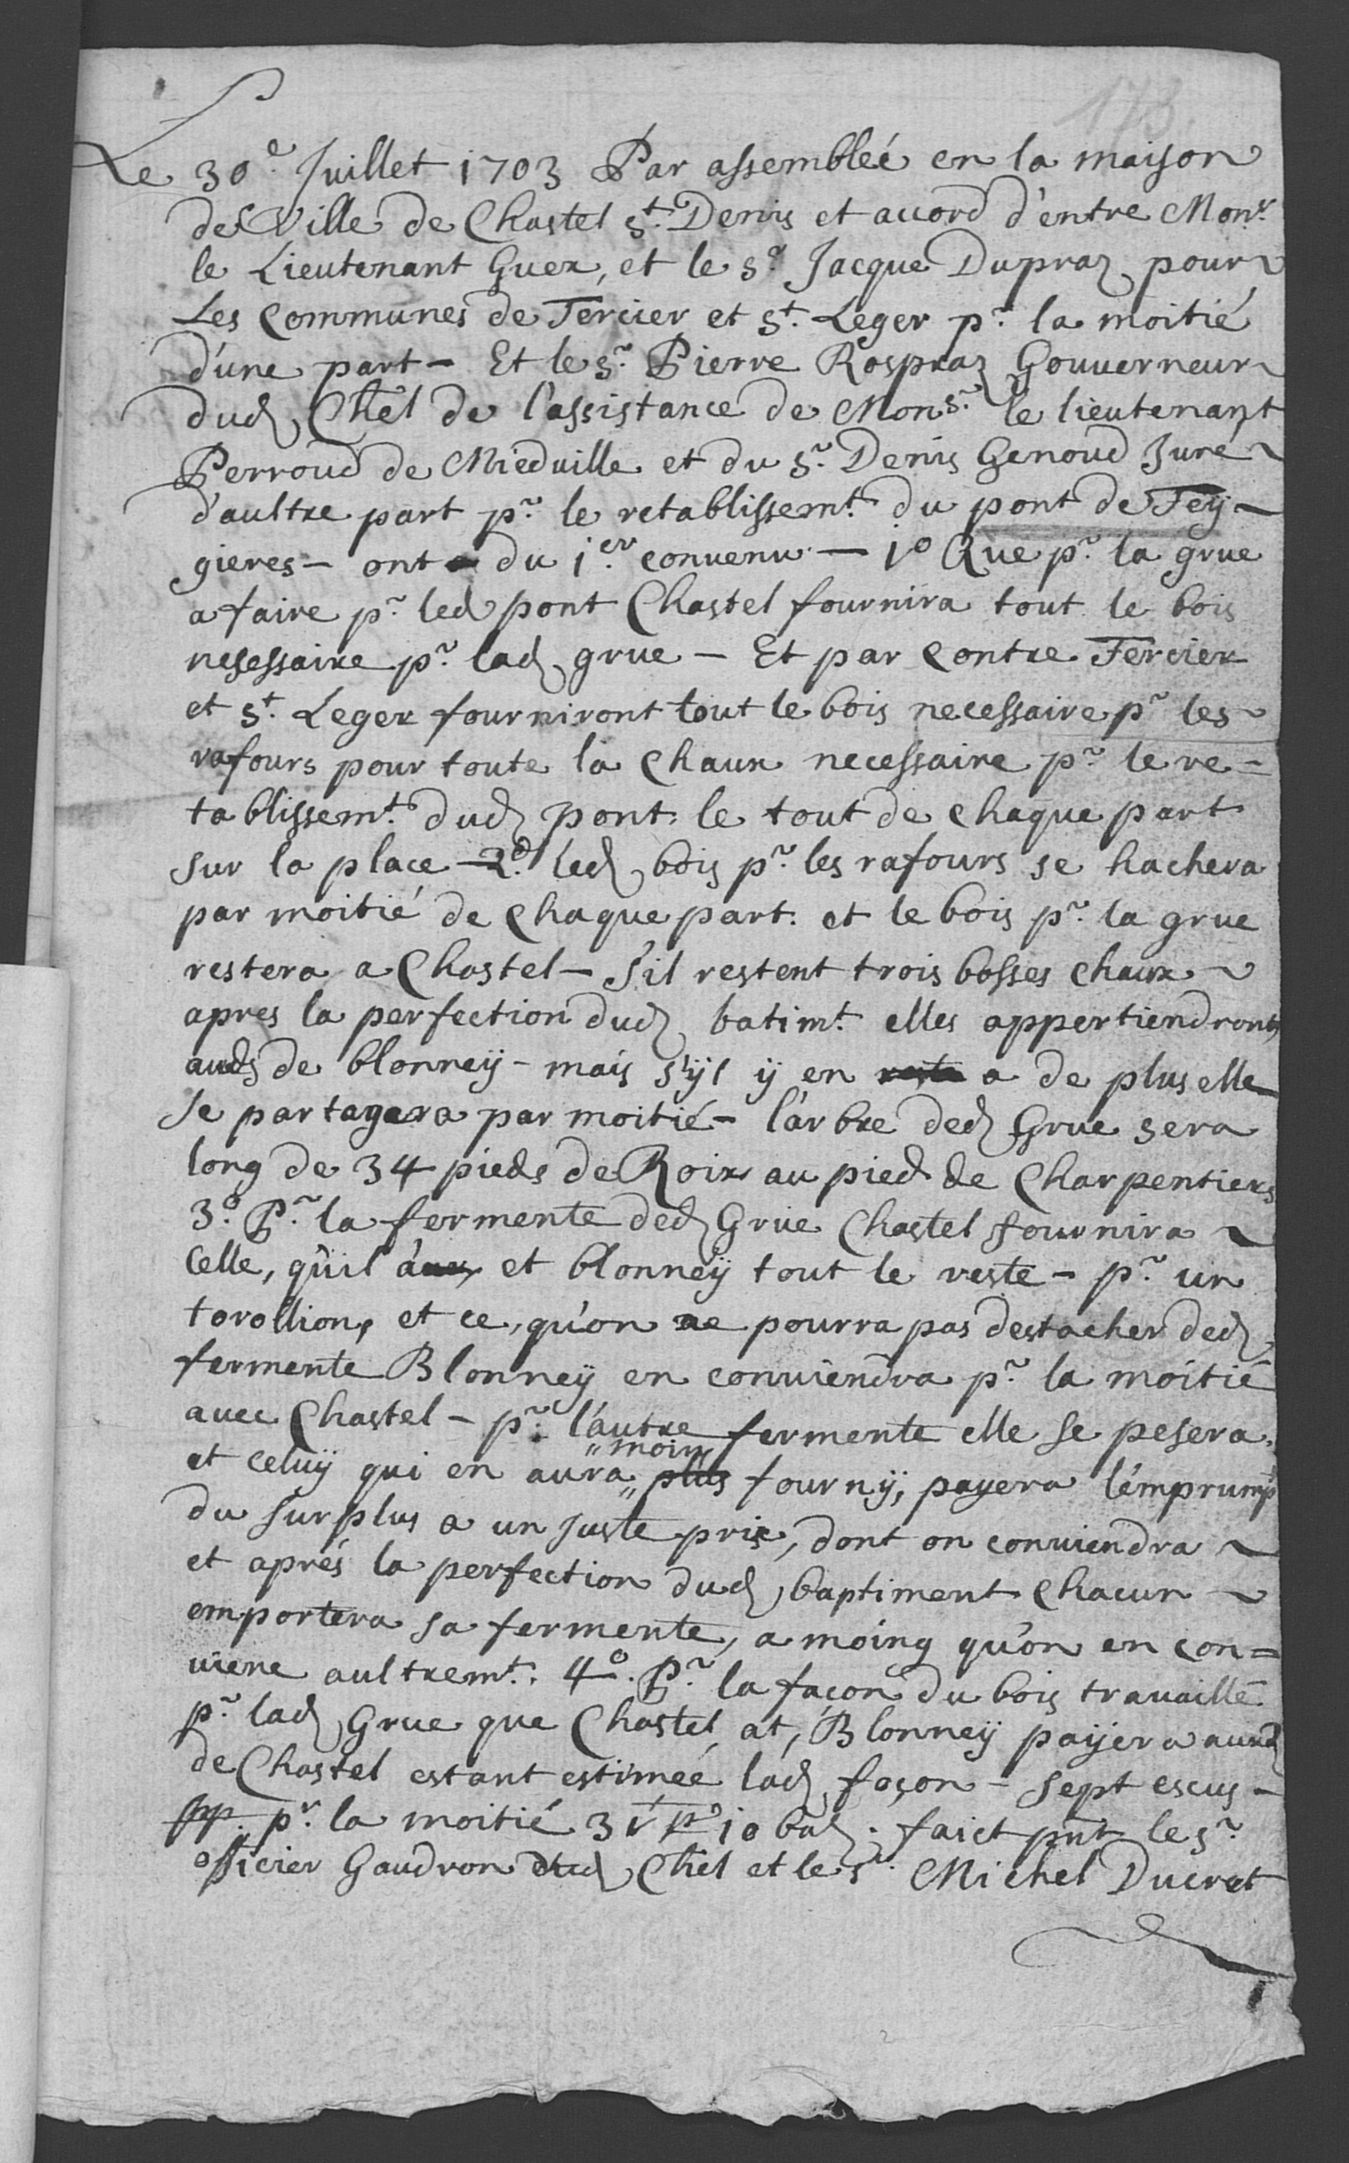 173.
Le 30e Juillet 1703 Par assembleé en la maison
de Ville de Chastel St. Denis et accord d'entre Monsr.
le Lieutenant Guex, et le Sr. Jacque Dupraz pour
Les Communes de Tercier et St. Leger pr. la moitié
d'une part - Et le Sr. Pierre Rospraz Gouverneur
dud. Chel de l'assistance de Monsr. le lieutenant
Perroud de Miedville et du Sr. Denis Genoud Juré
d'aultre part pr. le retablissemt. du pont de Fey-
gieres - ont du 1er. convenu - 1o Que pr. la grue
a faire pr. led pont Chastel fournira tout le bois
nesessaire pr. lad. grue - Et par contre Tercier
et St. Leger fourniront tout le bois necessaire pr. les
rafours pour toute la Chaux necessaire pr. le re=
tablissemt. dud. pont. le tout de chaque part
sur la place - 2o. led. bois pr. les rafours se hachera
par moitié de Chaque part. et le bois pr. la grue
restera a Chastel - S'il restent trois bosses chaux
apres la perfection dud. batimt. elles appertiendront
auds de blonney - mais s'yl y en a de plus elle
se partagera par moitié - l'arbre ded. Grue sera
long de 34 pieds de Roix au pied de Charpentiers
3o. Pr. la fermente ded. Grue Chastel fournira
Celle, qu'il a et blonney tout le reste - pr. un
torollion, et ce, qu'on ne pourra pas destacher ded.
fermente Blonney en conviendra pr. la moitié
avec Chastel - pr. l'autre fermente elle se pesera.
et celuy qui en aura "moin" plus fourny, payera l'emprump
du surplus a un juste prix, dont on conviendra
et aprés la perfection dud. baptiment Chacun
emportera sa fermente, a moing qu'on en con=
viene aultremt. 4o. Pr. la façon du bois travaillé
pr. lad. Grue que Chastel at, Blonney payera auxd.
de Chastel estant estimeé lad. façon - sept escus -
pr. la moitié 3 10 baz. faict pnt le Sr.
officier Gaudron dud. Chel et le Sr. Michel Ducret